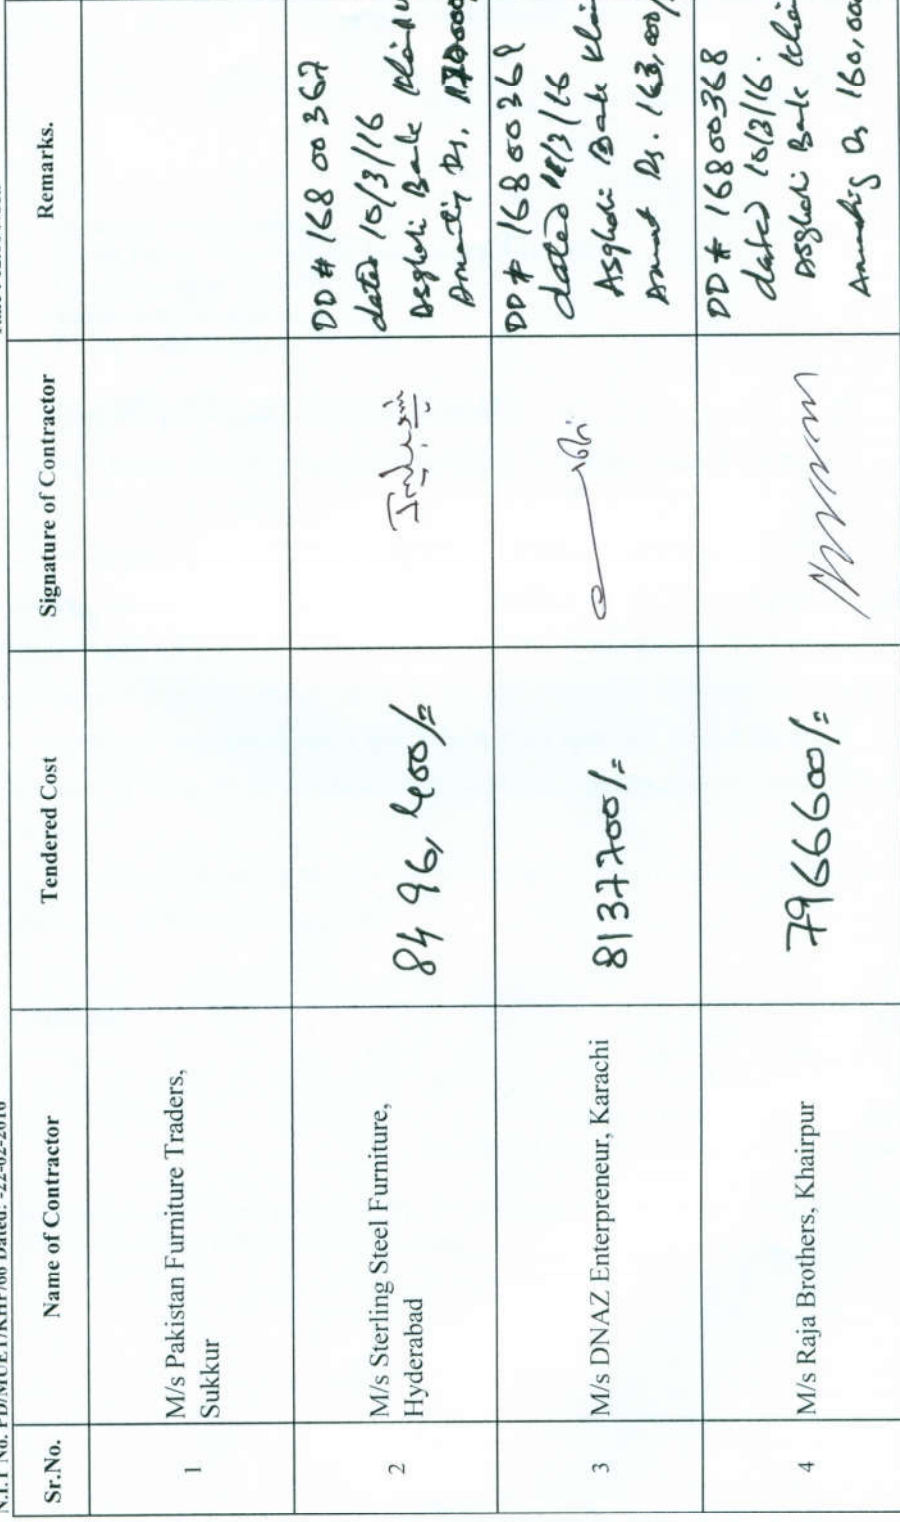 N.I.T No. PD/MUET/KHP/66 Dated: -22-02-2016
Sr.No. Name of Contractor Tendered Cost Signature of Contractor Remarks.
1 M/s Pakistan Furniture Traders,
Sukkur
2 M/s Sterling Steel Furniture,
Hyderabad
84 96, 400/=
DD # 168 00 367
dated 15/3/16
3 M/s DNAZ Enterpreneur, Karachi
8137200/=
DD # 168 00369
dated /3/16
Asghari Bank
Rs. 163,000/
4 M/s Raja Brothers, Khairpur
7966600/=
DD # 168 00368
dated 15/3/16.
Bank
Rs 160,00